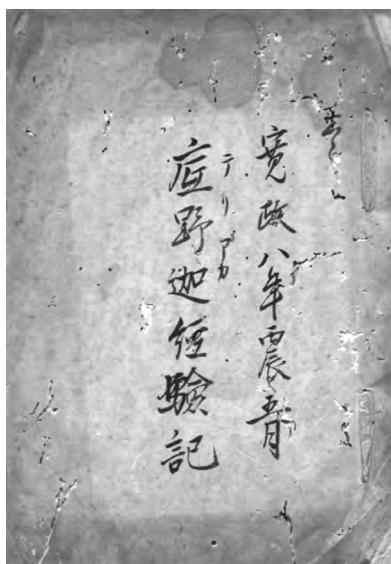 寛政八年丙辰五月
テリアカ
底野迦經驗記